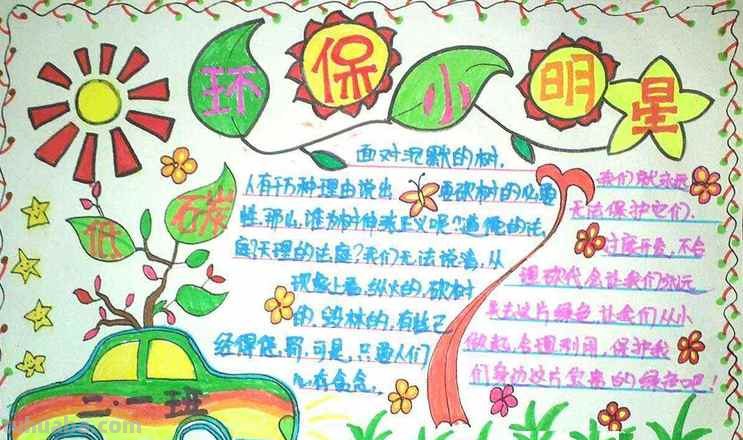 环保小明星
低碳
面对沉默的树,
人有千万种理由说出 再砍树的必要
性,那么,谁为树伸张正义呢?道德的法
庭?天理的法庭?我们无法说清,从
现象上看,纵火的,砍树
的,毁林的,有些已
经得惩罚,可是,只要人们
心存贪念,
我们就永远
无法保护它们.
过度开发,不合
理砍伐会让我们永远
失去这片绿色,让我们从小
做起,合理利用,保护我
们身边这片宝贵的绿色吧!
二·二班